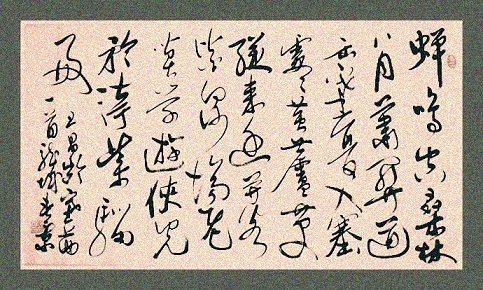 蟬鳴空桑林
八月蕭關道
入塞
處處黃蘆草
從來幽并客
皆沙場老
莫學遊俠兒
矜誇紫騮
好
王昌齡塞
一首